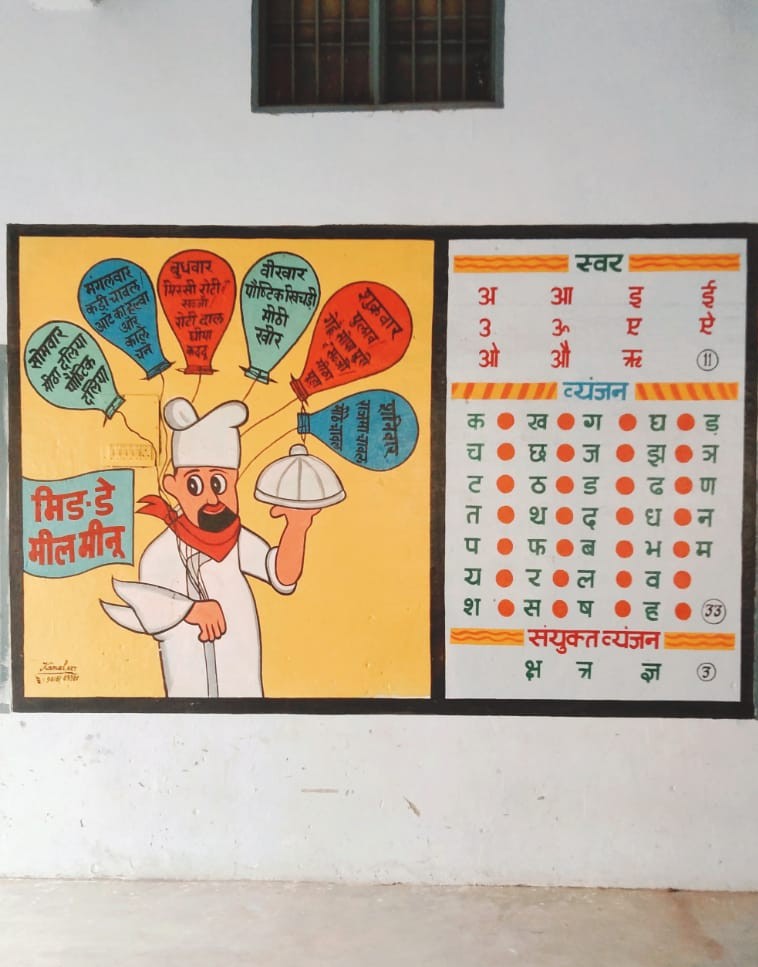 सोमवार
मीठा दलिया
पौष्टिक
दलिया
मंगलवार
कड़ी चावल
आटे का हलवा
और
काले
चने
बुधवार
मिस्सी रोटी
सब्जी
रोटी दाल
घीया
कद्दू
वीरवार
पौष्टिक खिचड़ी
मीठी
खीर
शुक्रवार
पुलाव
शनिवार
राजमा चावल
मीठे चावल
मिड-डे
मील मीनू
स्वर
अ आ इ ई
उ ऊ ए ऐ
ओ औ ऋ 11
व्यंजन
क ख ग घ ड़
च छ ज झ ञ
ट ठ ड ढ ण
त थ द ध न
प फ ब भ म
य र ल व
श स ष ह 33
संयुक्त व्यंजन
क्ष त्र ज्ञ 3